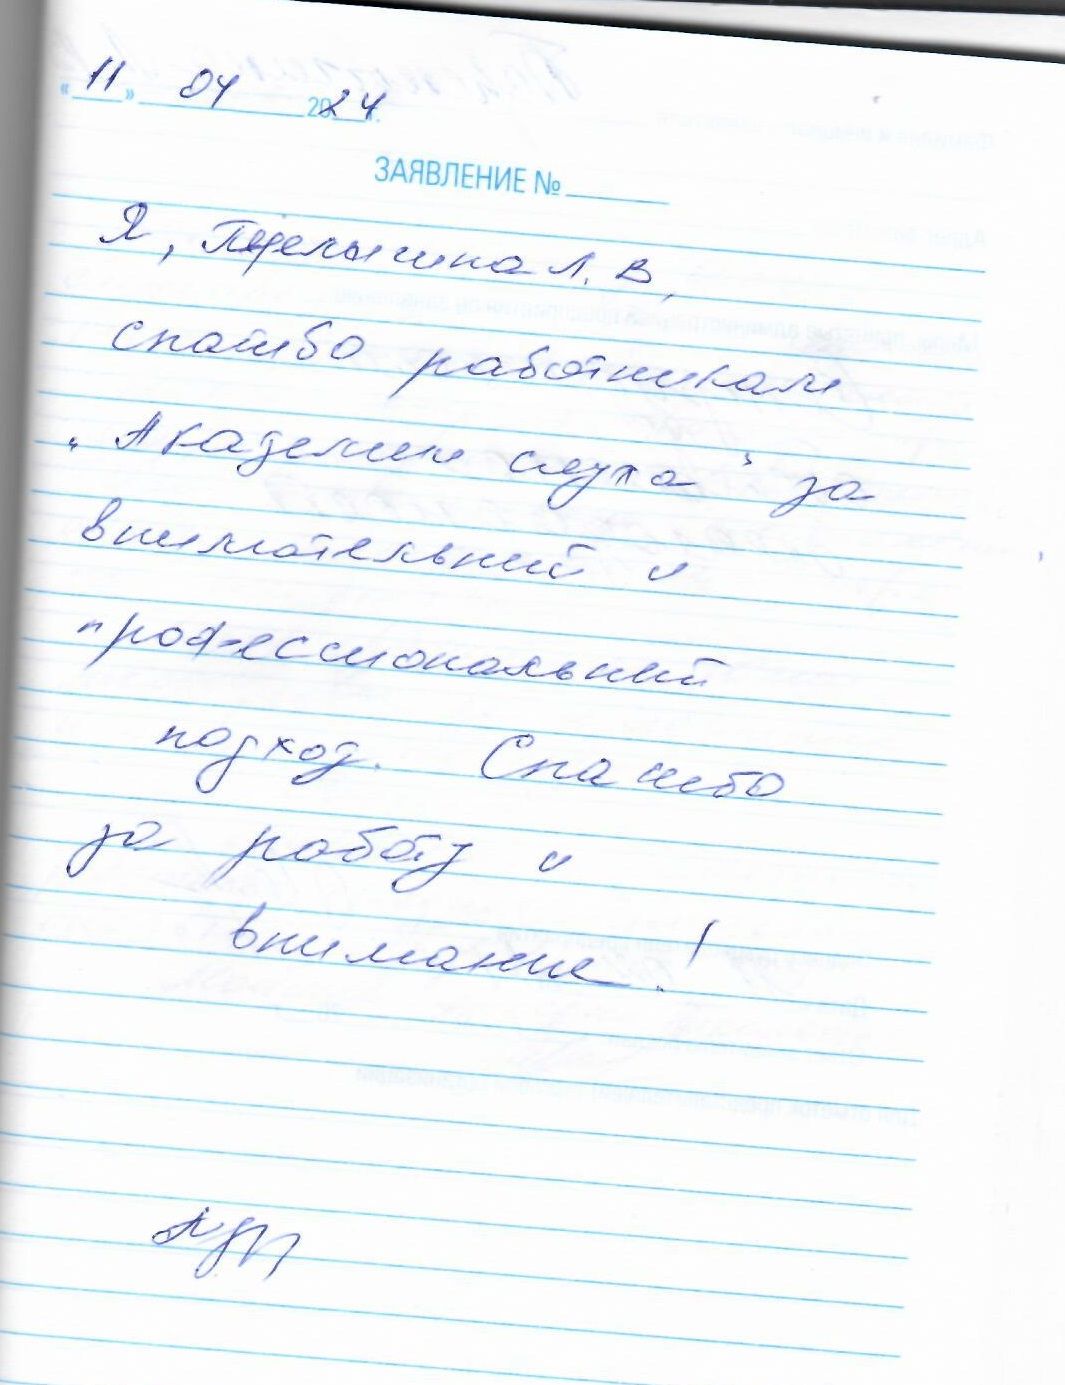 «11» 04 2024 г.
ЗАЯВЛЕНИЕ №
Я, Л. В,
спасибо работникам
"Академии слуха" за
внимательный и
профессиональный
подход. Спасибо
за работу и
внимание!